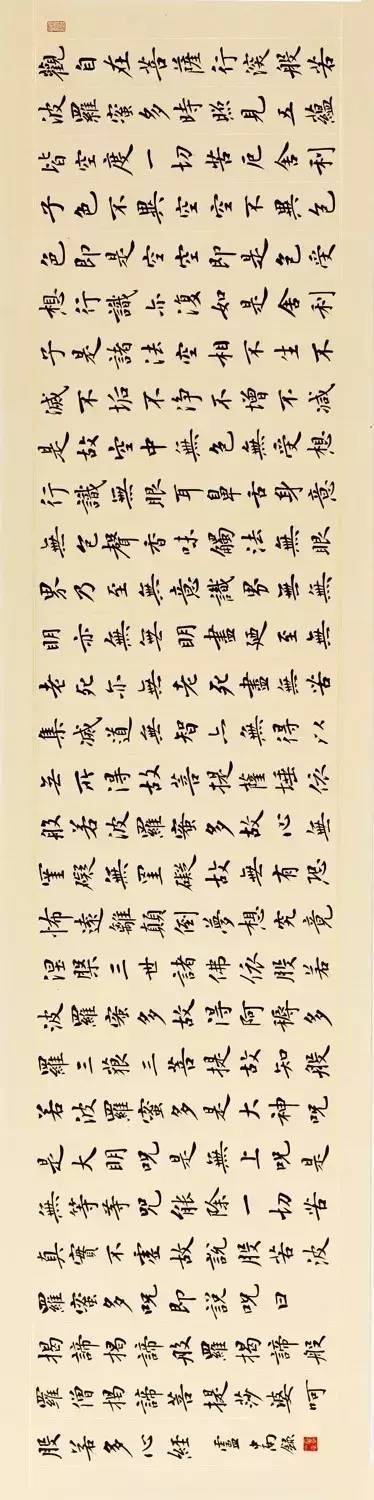 觀自在菩薩行深般若
波羅蜜多時照見五蘊
皆空度一切苦厄舍利
子色不異空空不異色
色即是空空即是色受
想行識亦復如是舍利
子是諸法空相不生不
滅不垢不淨不增不減
是故空中無色無受想
行識無眼耳鼻舌身意
無色聲香味觸法無眼
界乃至無意識界無無
明亦無無明盡廼至無
老死亦無老死盡無苦
集滅道無智亦無得以
無所得故菩提薩埵依
般若波羅蜜多故心無
罣礙無罣礙故無有恐
怖遠離顛倒夢想究竟
涅槃三世諸佛依般若
波羅蜜多故得阿耨多
羅三藐三菩提故知般
若波羅蜜多是大神咒
是大明咒是無上咒是
無等等咒能除一切苦
真實不虛故說般若波
羅蜜多咒即說咒曰
揭諦揭諦般羅揭諦般
羅僧揭諦菩提莎婆呵
般若多心經